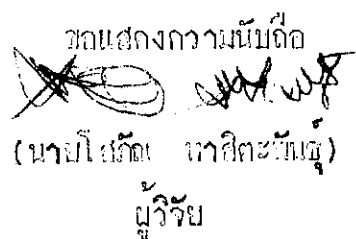 ขอแสดงความนับถือ
(นายโสภัณ หาสิตะพันธุ์)
ผู้วิจัย